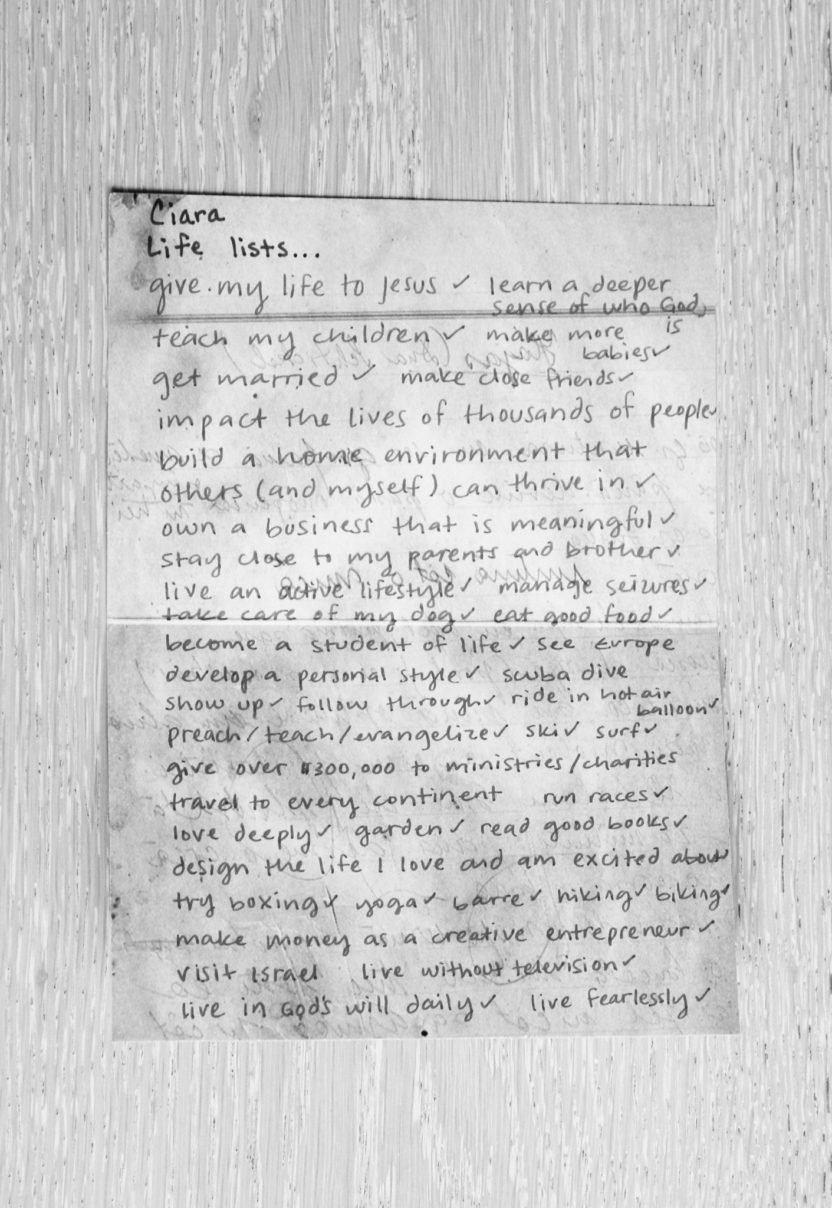 Ciara
Life lists...
give my life to Jesus ✓ learn a deeper
sense of who God
is
teach my children ✓ make more
babies ✓
get married ✓ make close friends ✓
impact the lives of thousands of people ✓
build a home environment that
others (and myself) can thrive in ✓
own a business that is meaningful ✓
stay close to my parents and brother ✓
live an active lifestyle ✓ manage seizures ✓
take care of my dog ✓ eat good food ✓
become a student of life ✓ see Europe
develop a personal style ✓ scuba dive
show up ✓ follow through ✓ ride in hot air
balloon ✓
preach/teach/evangelize ✓ ski ✓ surf ✓
give over $300,000 to ministries/charities
travel to every continent run races ✓
love deeply ✓ garden ✓ read good books ✓
design the life I love and am excited about ✓
try boxing ✓ yoga ✓ barre ✓ hiking ✓ biking ✓
make money as a creative entrepreneur ✓
visit Israel live without television ✓
live in God's will daily ✓ live fearlessly ✓